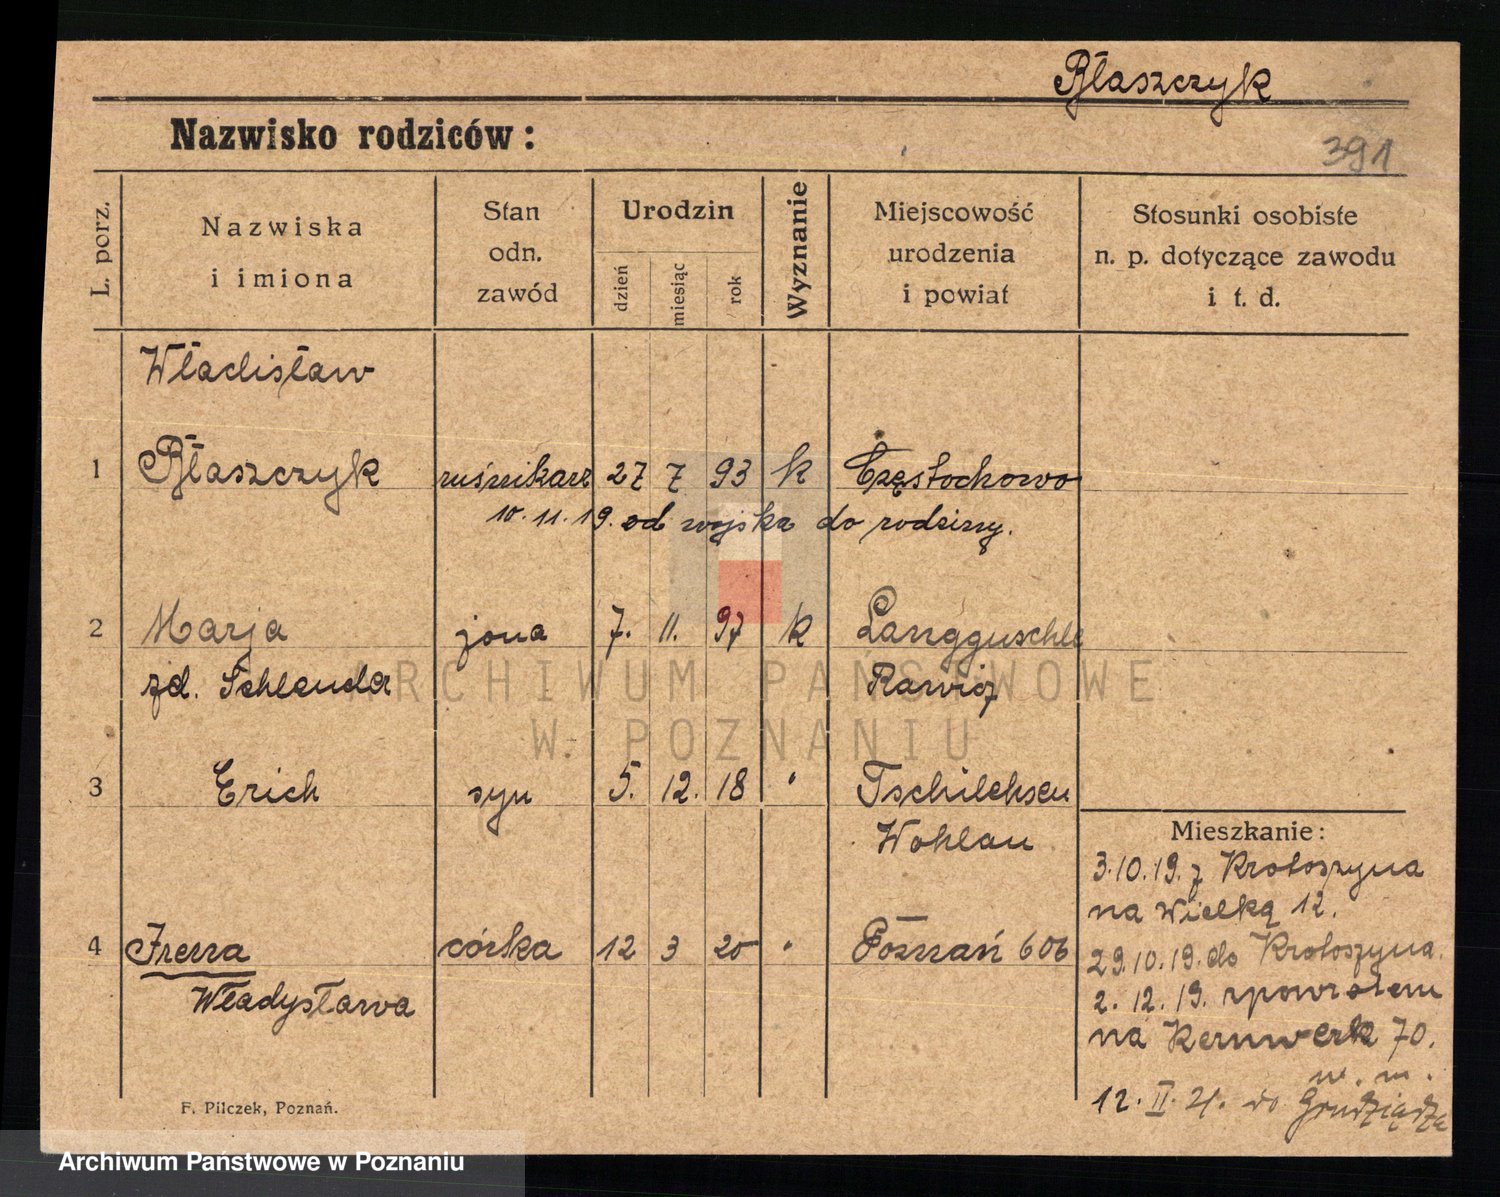 Błaszczyk
Nazwisko rodziców:
391
L. porz.
Nazwiska
i imiona
Stan
odn.
zawód
Urodzin
dzień
miesiąc
rok
Wyznanie
Miejscowość
urodzenia
i powiat
Stosunki osobiste
n. p. dotyczące zawodu
i t. d.
Władisław
1 Błaszczyk ruśnikarz 27 7 93 k Częstochowo
10.11.19. od wojska do rodziny.
2 Marja żona 7. 11. 97 k Langguschle
zd. Schlender Rawicz
3 Erich syn 5. 12. 18 " Tschilehsen
Wohlau
4 Irena córka 12 3 20 " Poznań 606
Władysława
Mieszkanie:
3.10.19. z Krotoszyna
na Wielką 12.
29.10.19. do Krotoszyna.
2. 12. 19. zpowrotem
na Kernwerk 70.
w. m.
12. II. 21. do Grudziądza
F. Pilczek, Poznań.
ARCHIWUM PAŃSTWOWE
W POZNANIU
Archiwum Państwowe w Poznaniu